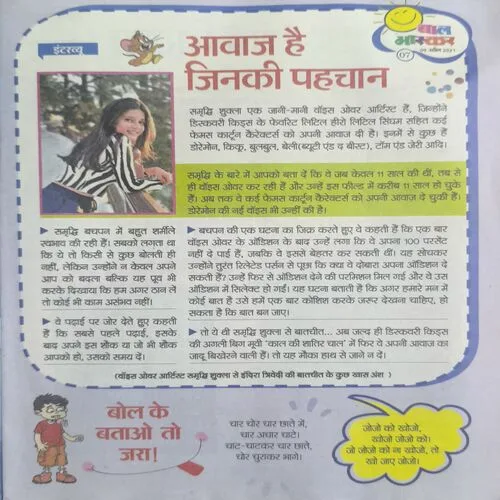 इंटरव्यू
आवाज है
जिनकी पहचान
बाल
भास्कर
07
समृद्धि शुक्ला एक जानी-मानी वॉइस ओवर आर्टिस्ट हैं, जिन्होंने
डिस्कवरी किड्स के फेवरिट लिटिल हीरो लिटिल सिंघम सहित कई
फेमस कार्टून कैरेक्टर्स को अपनी आवाज दी है। इनमें से कुछ हैं
डोरेमोन, किकू, बुलबुल, बेली(ब्यूटी एंड द बीस्ट), टॉम एंड जेरी आदि।
समृद्धि के बारे में आपको बता दें कि वे जब केवल 11 साल की थीं, तब से
ही वॉइस ओवर कर रही हैं और उन्हें इस फील्ड में करीब 11 साल हो चुके
हैं। अब तक वे कई फेमस कार्टून कैरेक्टर्स को अपनी आवाज दे चुकी हैं।
डोरेमोन की नई वॉइस भी उन्हीं की है।
► समृद्धि बचपन में बहुत शर्मीले
स्वभाव की रही हैं। सबको लगता था
कि ये तो किसी से कुछ बोलती ही
नहीं, लेकिन उन्होंने न केवल अपने
आप को बदला बल्कि यह प्रूव भी
करके दिखाया कि हम अगर ठान लें
तो कोई भी काम असंभव नहीं।
► वे पढ़ाई पर जोर देते हुए कहती
हैं कि सबसे पहले पढ़ाई, इसके
बाद अपने इस शौक या जो भी शौक
आपको हो, उसको समय दें।
► बचपन की एक घटना का जिक्र करते हुए वे कहती हैं कि एक बार
वॉइस ओवर के ऑडिशन के बाद उन्हें लगा कि वे अपना 100 परसेंट
नहीं दे पाई हैं, जबकि वे इससे बेहतर कर सकती थीं। यह सोचकर
उन्होंने तुरंत रिलेटेड पर्सन से पूछा कि क्या वे दोबारा अपना ऑडिशन दे
सकती हैं? उन्हें फिर से ऑडिशन देने की परमिशन मिल गई और वे उस
ऑडिशन में सिलेक्ट हो गईं। यह घटना बताती है कि अगर हमारे मन में
कोई बात है उसे हमें एक बार कोशिश करके जरूर देखना चाहिए, हो
सकता है कि बात बन जाए।
► तो ये थी समृद्धि शुक्ला से बातचीत... अब जल्द ही डिस्कवरी किड्स
की अगली बिग मूवी 'काल की शातिर चाल' में फिर वे अपनी आवाज का
जादू बिखेरने वाली हैं। तो यह मौका हाथ से जाने न दें।
(वॉइस ओवर आर्टिस्ट समृद्धि शुक्ला से इंदिरा त्रिवेदी की बातचीत के कुछ खास अंश )
बोल के
बताओ तो
जरा!
चार चोर चार छाते में,
चार अचार चाटे।
चाट-चाटकर चार छाते,
चोर चुराकर भागे।
जोजो को खोजो,
खोजो जोजो को।
जो जोजो को ना खोजो, तो
खो जाए जोजो।